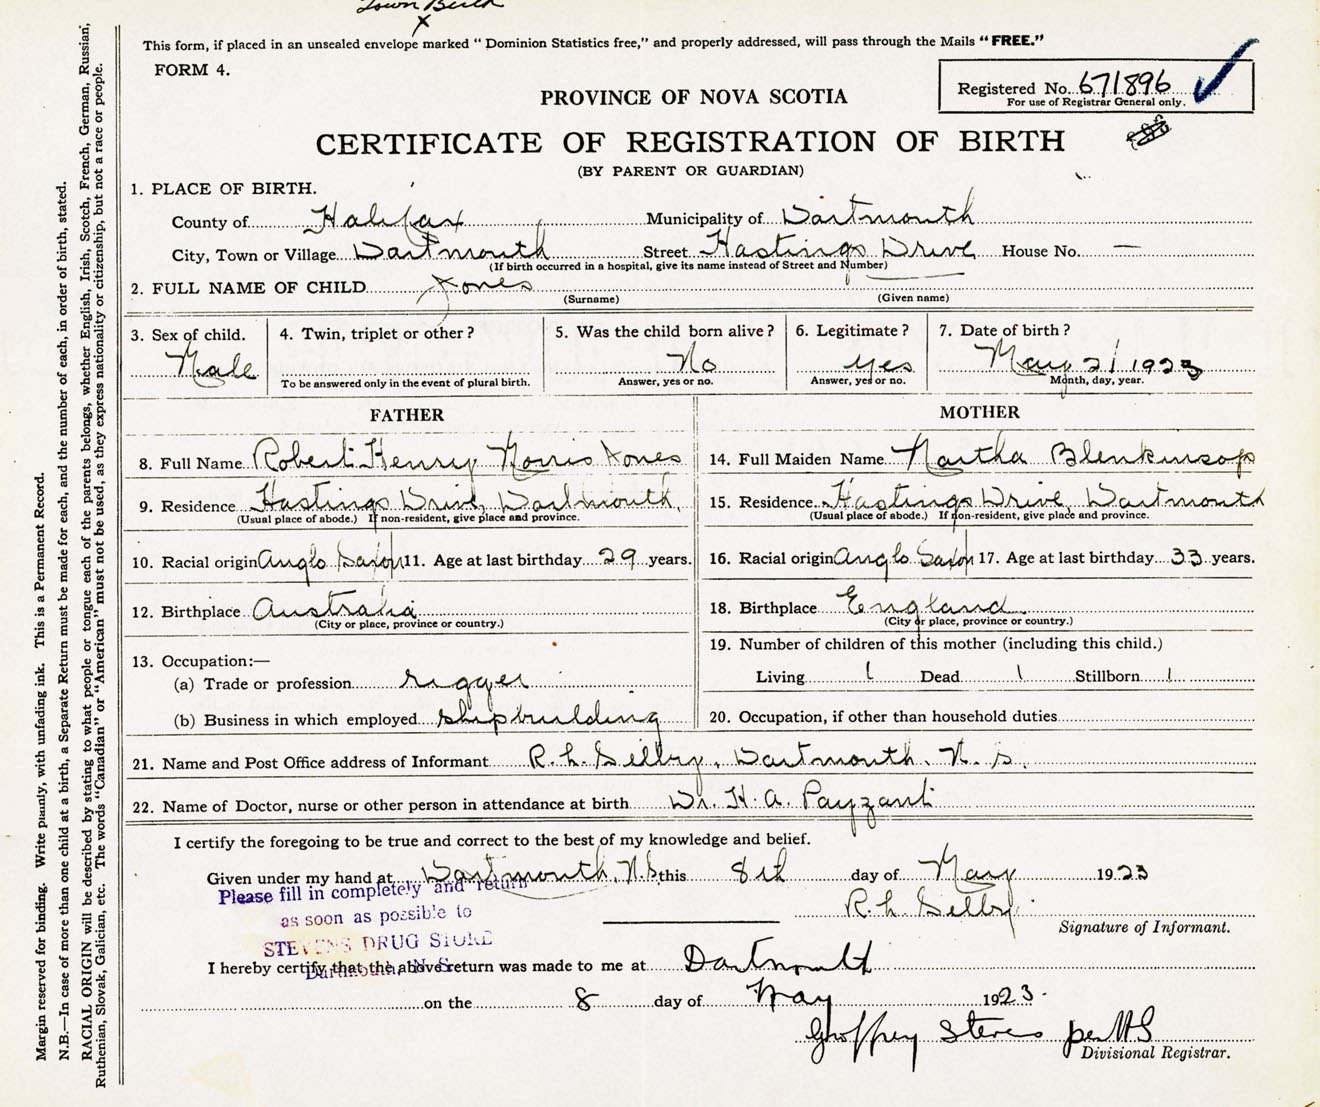 Town Birth
X
This form, if placed in an unsealed envelope marked "Dominion Statistics free," and properly addressed, will pass through the Mails "FREE."
FORM 4.
Registered No. 671896
For use of Registrar General only.
PROVINCE OF NOVA SCOTIA
CERTIFICATE OF REGISTRATION OF BIRTH
(BY PARENT OR GUARDIAN)
1. PLACE OF BIRTH.
County of Halifax Municipality of Dartmouth
City, Town or Village Dartmouth Street Hastings Drive House No. —
(If birth occurred in a hospital, give its name instead of Street and Number)
2. FULL NAME OF CHILD Jones
(Surname) (Given name)
3. Sex of child. 4. Twin, triplet or other? 5. Was the child born alive? 6. Legitimate? 7. Date of birth?
Male No yes May 2/ 1923
To be answered only in the event of plural birth. Answer, yes or no. Answer, yes or no. Month, day, year.
FATHER MOTHER
8. Full Name Robert Henry Morris Jones 14. Full Maiden Name Martha Blenkinsop
9. Residence Hastings Drive, Dartmouth, 15. Residence Hastings Drive, Dartmouth
(Usual place of abode.) If non-resident, give place and province. (Usual place of abode.) If non-resident, give place and province.
10. Racial origin Anglo Saxon 11. Age at last birthday 29 years. 16. Racial origin Anglo Saxon 17. Age at last birthday 33 years.
12. Birthplace Australia 18. Birthplace England
(City or place, province or country.) (City or place, province or country.)
19. Number of children of this mother (including this child.)
13. Occupation:—
(a) Trade or profession rigger Living 1 Dead 1 Stillborn 1
(b) Business in which employed shipbuilding 20. Occupation, if other than household duties
21. Name and Post Office address of Informant R. L. Selby, Dartmouth, N. S.
22. Name of Doctor, nurse or other person in attendance at birth Dr. H. A. Payzant
I certify the foregoing to be true and correct to the best of my knowledge and belief.
Given under my hand at Dartmouth, N.S. this 8th day of May 1923
Please fill in completely and return
as soon as possible to
STEVENS DRUG STORE
Dartmouth, N. S.
R. L. Selby
Signature of Informant.
I hereby certify that the above return was made to me at Dartmouth
on the 8 day of May 1923.
Geoffrey Stevens per MS
Divisional Registrar.
Margin reserved for binding. Write plainly, with unfading ink. This is a Permanent Record.
N.B.—In case of more than one child at a birth, a Separate Return must be made for each, and the number of each, in order of birth, stated.
RACIAL ORIGIN will be described by stating to what people or tongue each of the parents belongs, whether English, Irish, Scotch, French, German, Russian,
Ruthenian, Slovak, Galician, etc. The words "Canadian" or "American" must not be used, as they express nationality or citizenship, but not a race or people.